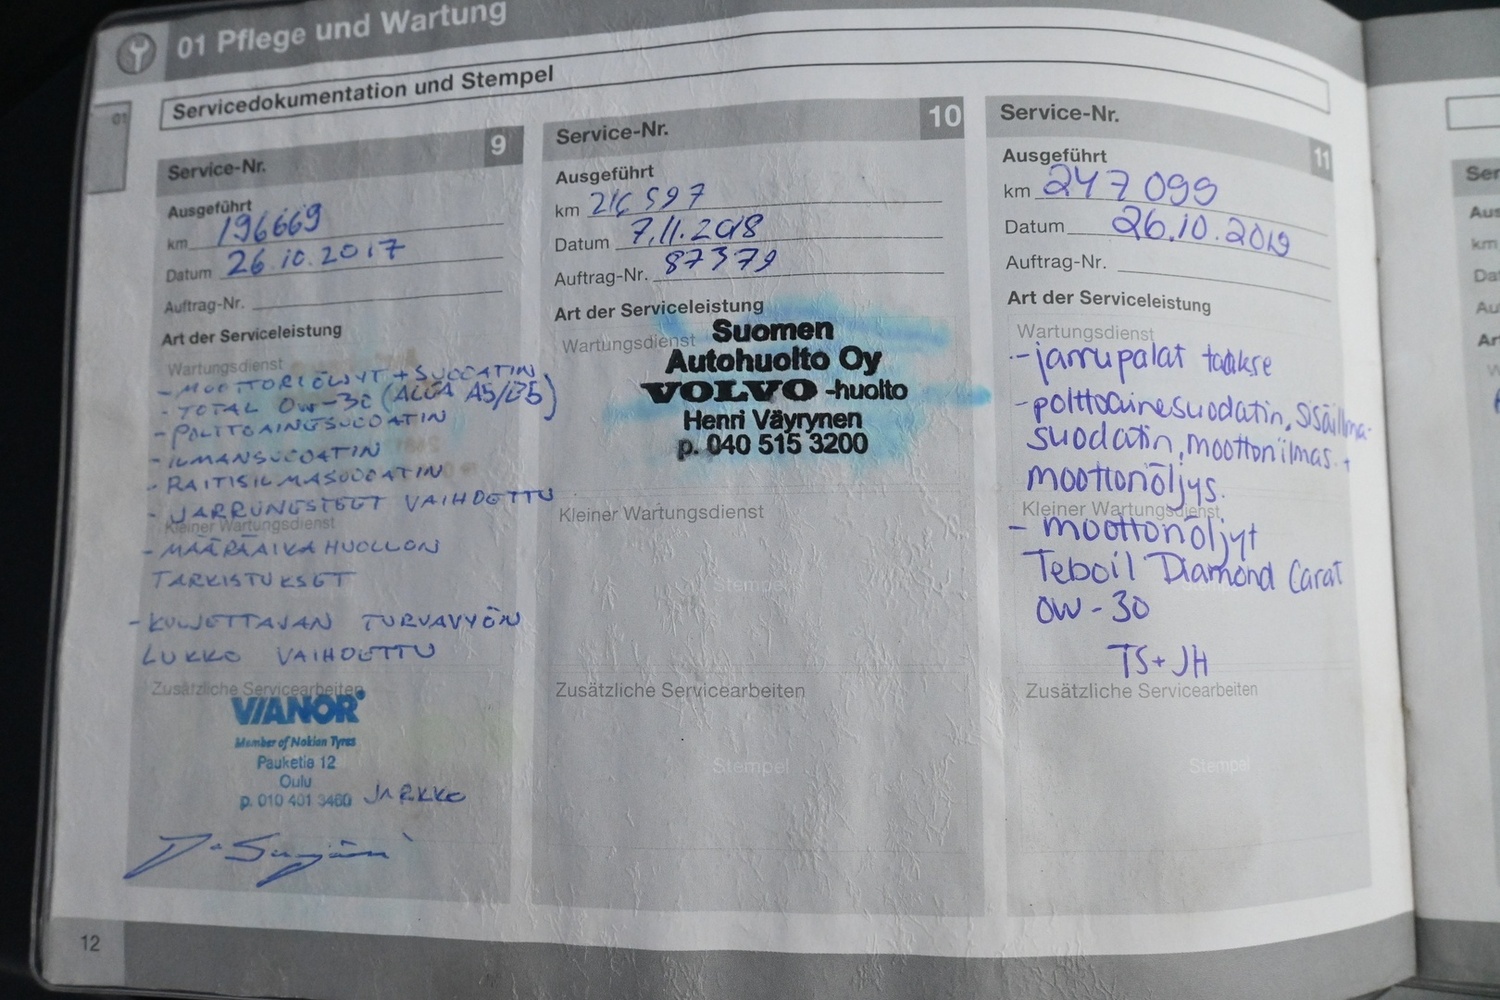 01 Pflege und Wartung
01
Servicedokumentation und Stempel
Service-Nr. 9
Ausgeführt
km 196669
Datum 26.10.2017
Auftrag-Nr.
Art der Serviceleistung
Wartungsdienst
- MOOTTORIÖLJYT + SUODATIN
- TOTAL 0W-30 (ACEA A5/B5)
- POLTTOAINESUODATIN
- ILMANSUODATIN
- RAITISILMASUODATIN
- JARRUNESTEET VAIHDETTU
Kleiner Wartungsdienst
- MÄÄRÄAIKAHUOLLON
TARKISTUKSET
- KULJETTAJAN TURVAVYÖN
LUKKO VAIHDETTU
Zusätzliche Servicearbeiten
VIANOR
Member of Nokian Tyres
Pauketie 12
Oulu
p. 010 401 3460 JARKKO
12
Service-Nr. 10
Ausgeführt
km 216597
Datum 7.11.2018
Auftrag-Nr. 87379
Art der Serviceleistung
Wartungsdienst
Suomen
Autohuolto Oy
VOLVO -huolto
Henri Väyrynen
p. 040 515 3200
Kleiner Wartungsdienst
Stempel
Zusätzliche Servicearbeiten
Stempel
Service-Nr. 11
Ausgeführt
km 247099
Datum 26.10.2019
Auftrag-Nr.
Art der Serviceleistung
Wartungsdienst
- jarrupalat taakse
- polttoainesuodatin, sisäilma-
suodatin, moottoriilmas. +
moottoriöljys.
Kleiner Wartungsdienst
- moottoriöljyt
Teboil Diamond Carat
0W-30
Stempel
TS+JH
Zusätzliche Servicearbeiten
Stempel